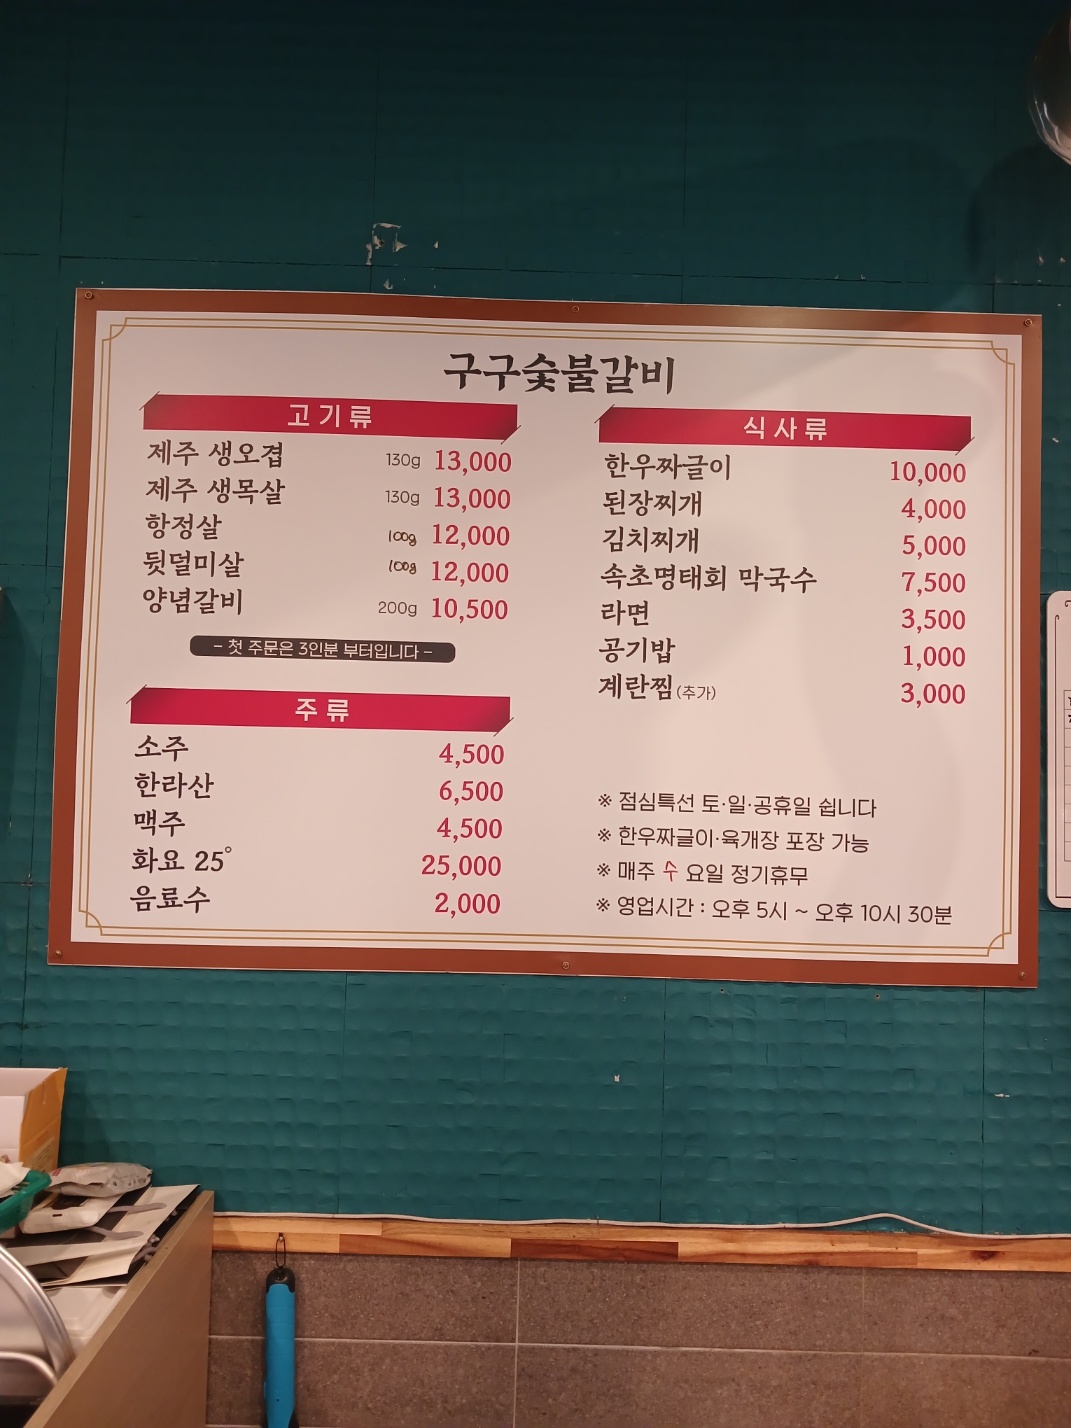 구구숯불갈비
고기류
제주 생오겹 130g 13,000
제주 생목살 130g 13,000
항정살 100g 12,000
뒷덜미살 100g 12,000
양념갈비 200g 10,500
- 첫 주문은 3인분 부터입니다 -
주류
소주 4,500
한라산 6,500
맥주 4,500
화요 25° 25,000
음료수 2,000
식사류
한우짜글이 10,000
된장찌개 4,000
김치찌개 5,000
속초명태회 막국수 7,500
라면 3,500
공기밥 1,000
계란찜(추가) 3,000
※ 점심특선 토·일·공휴일 쉽니다
※ 한우짜글이·육개장 포장 가능
※ 매주 수 요일 정기휴무
※ 영업시간 : 오후 5시 ~ 오후 10시 30분